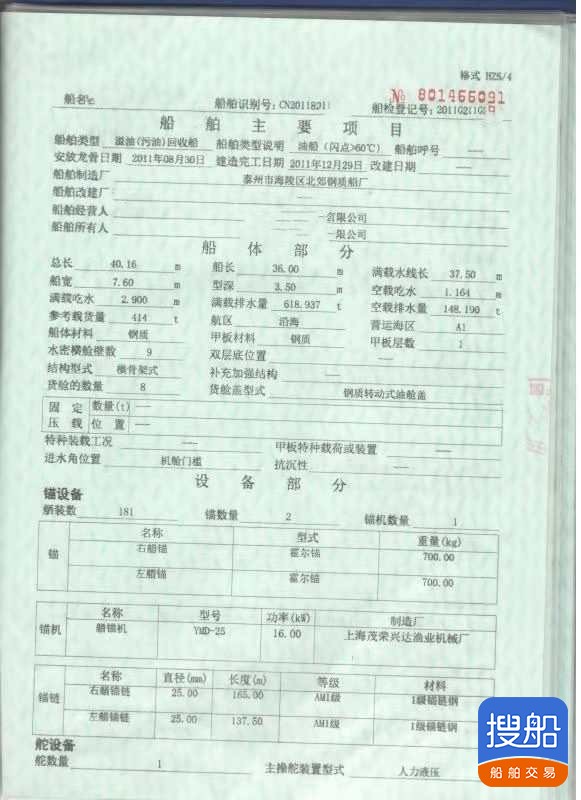 格式 HZS/4
№ 801466091
船名 船舶识别号：CN20118 船检登记号：2011G
船舶主要项目
船舶类型 溢油(污油)回收船 船舶类型说明 油船（闪点>60℃） 船舶呼号 ——
安放龙骨日期 2011年08月30日 建造完工日期 2011年12月29日 改建日期 ——
船舶制造厂 泰州市海陵区北郊钢质船厂
船舶改建厂 ——
船舶经营人 有限公司
船舶所有人 限公司
船体部分
总长 40.16 m 船长 36.00 m 满载水线长 37.50 m
船宽 7.60 m 型深 3.50 m 空载吃水 1.164 m
满载吃水 2.900 m 满载排水量 618.937 t 空载排水量 148.190 t
参考载货量 414 t 航区 沿海 营运海区 A1
船体材料 钢质 甲板材料 钢质 甲板层数 1
水密横舱壁数 9 双层底位置 ——
结构型式 横骨架式 补充加强结构 ——
货舱的数量 8 货舱盖型式 钢质转动式油舱盖
固定压载 数量(t) ——
位置 ——
特种装载工况 —— 甲板特种载荷或装置 ——
进水角位置 机舱门槛 抗沉性 ——
设备部分
锚设备
舾装数 181 锚数量 2 锚机数量 1
锚 名称 型式 重量(kg)
右艏锚 霍尔锚 700.00
左艏锚 霍尔锚 700.00
锚机 名称 型号 功率(kW) 制造厂
艏锚机 YMD-25 16.00 上海茂荣兴达渔业机械厂
锚链 名称 直径(mm) 长度(m) 等级 材料
右艏锚链 25.00 165.00 AM1级 1级锚链钢
左艏锚链 25.00 137.50 AM1级 1级锚链钢
舵设备
舵数量 1 主操舵装置型式 人力液压
搜船
船舶交易